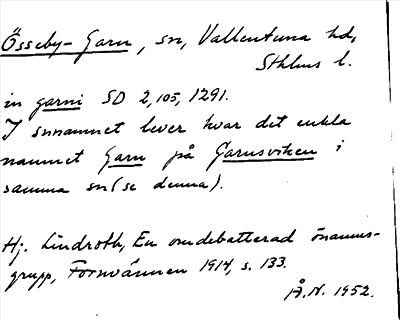 Össeby-Garn, sn, Vallentuna hd,
Sthlms l.
in garni SD 2,105, 1291.
I snnamnet lever kvar det enkla
namnet Garn på Garnsviken i
samma sn (se denna).
Hj. Lindroth, En omdebatterad önamns-
grupp, Fornvännen 1914, s. 133.
Å.N. 1952.